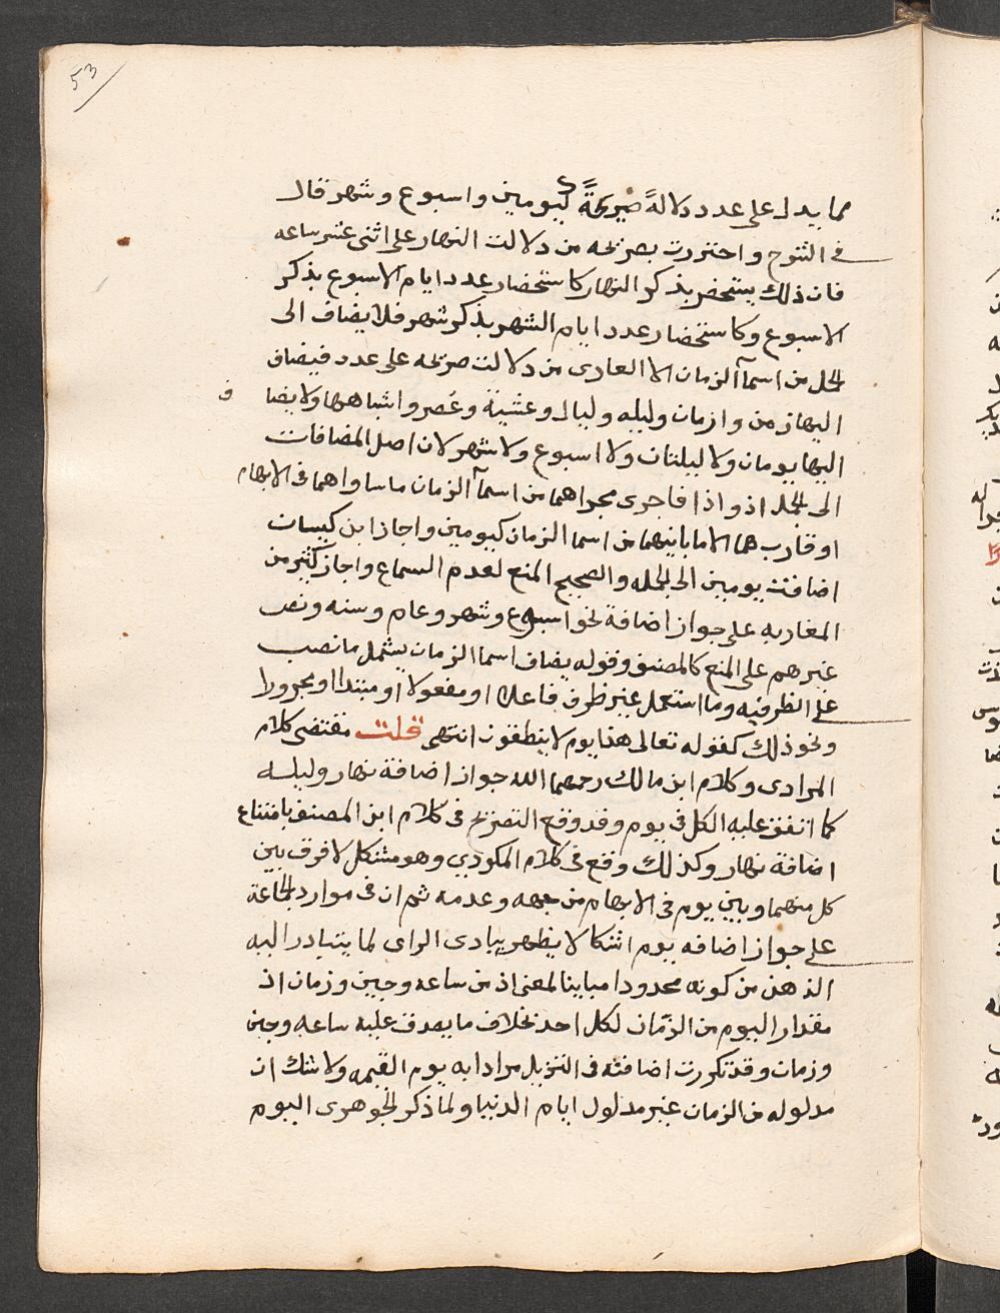 53
مما يدل على عدد دلالةً صريحةً كيومين واسبوع وشهر قال
في الشرح واحترزت بصريحه من دلالت النهار على اثنى عشر ساعه
فان ذلك يستحضر بذكر النهار كاستحضار عدد ايام الاسبوع بذكر
الاسبوع وكاستحضار عدد ايام الشهر بذكر شهر فلا يضاف الى
الجمل من اسمآ الزمان الا العارى من دلالت صريحه على عدد فيضاف
اليها زمن وازمان وليله وليال وعشية وعصر واشباهها ولا يضاف
اليها يومان ولا ليلتان ولا اسبوع ولا شهر لان اصل المضافات
الى الجمل اذ واذا فاجرى مجراهما من اسمآ الزمان ما ساواهما فى الابهام
او قاربهما لا ما باينهما من اسما الزمان كيومين واجاز ابن كيسان
اضافت يومين الى الجمله والصحيح المنع لعدم السماع واجاز كثير من
المغاربه على جواز اضافة نحو اسبوع وشهر وعام وسنه ونص
غيرهم على المنع كالمصنف وقوله يضاف اسما الزمان يشمل ما نصب
على الظرفيه وما استعمل غير ظرف فاعلا او مفعولا او مبتدا او مجرورا
ونحو ذلك كقوله تعالى هذا يوم لا ينطقون انتهى قلت مقتضى كلام
المرادى وكلام ابن مالك رحمهما الله جواز اضافة نهار وليلـه
كما اتفق عليه الكل فى يوم وقد وقع التصريح فى كلام ابن المصنف بامتناع
اضافة نهار وكذلك وقع فى كلام المكودي وهو مشكل لا فرق بين
كل منهما وبين يوم فى الابهام من جهه وعدمه ثم ان فى موارد الجماعة
على جواز اضافه يوم اشكالا يظهر ببادى الراى لما يتبادر اليه
الذهن من كونه محدودا مباينا لمعنى اذ من ساعه وحين وزمان اذ
مقدار اليوم من الزمان لكل احد بخلاف ما يصدق عليه ساعه وحين
وزمان وقد تكررت اضافته فى التنزيل مرادا به يوم القيمه ولا شك ان
مدلوله من الزمان غير مدلول ايام الدنيا ولما ذكر الجوهرى اليوم